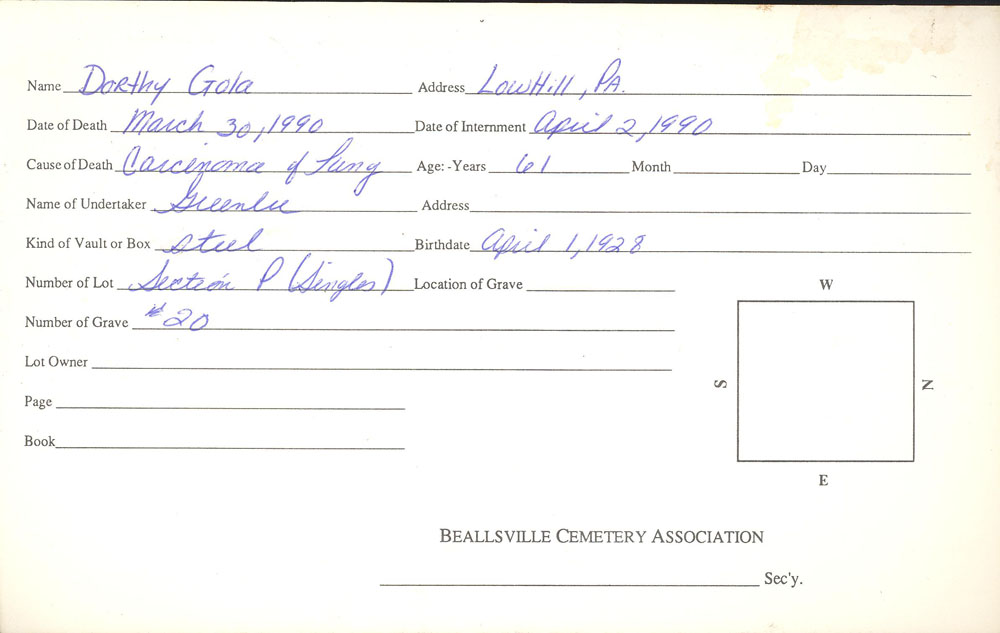 Name Dorthy Gola Address LowHill, PA.
Date of Death March 30, 1990 Date of Internment April 2, 1990
Cause of Death Carcinoma of Lung Age: -Years 61 Month Day
Name of Undertaker Greenlee Address
Kind of Vault or Box Steel Birthdate April 1, 1928
Number of Lot Section P (Singles) Location of Grave
W
Number of Grave #20
Lot Owner
S N
Page
Book
E
BEALLSVILLE CEMETERY ASSOCIATION
Sec'y.